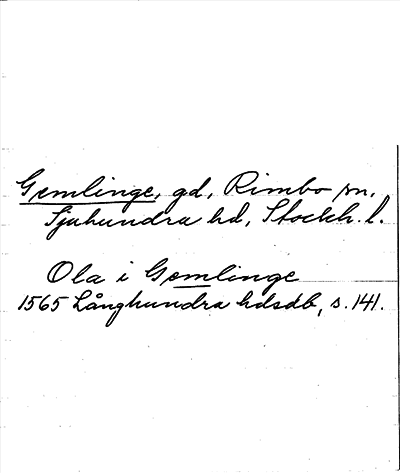 Gemlinge, gd, Rimbo sn,
Sjuhundra hd, Stockh. l.
Ola i Gemlinge
1565 Långhundra hdsdb, s. 141.